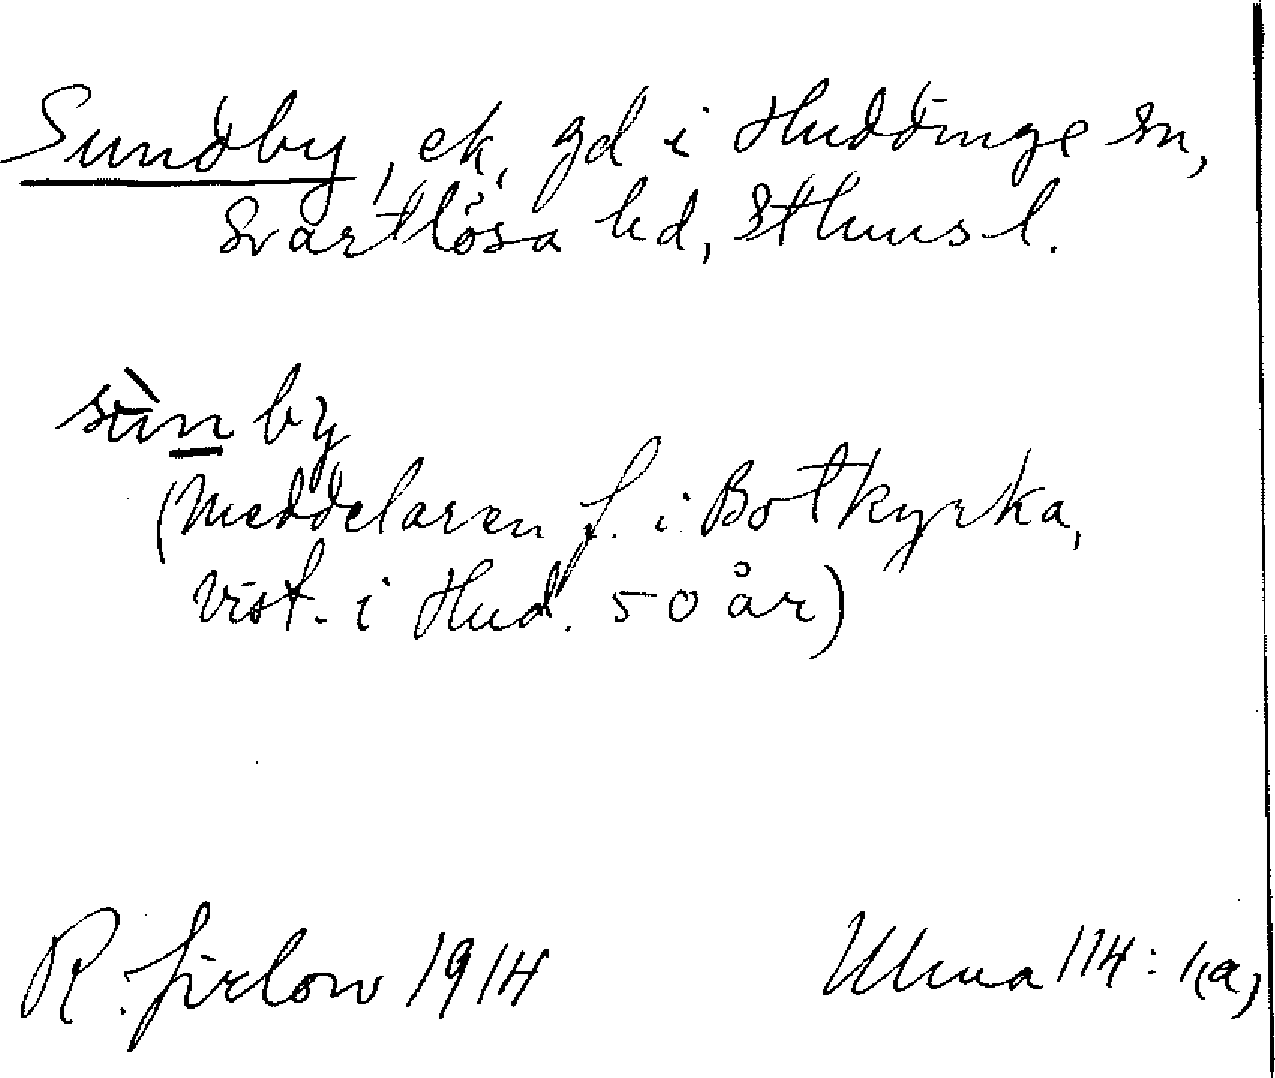 Sundby, ek, gd i Huddinge sn,
Svartlösa hd, Sthms l.
sùn by
(Meddelaren f. i Botkyrka,
vist. i Hud. 50 år)
R. Jirlow 1914
Ulma 114: 1(a)